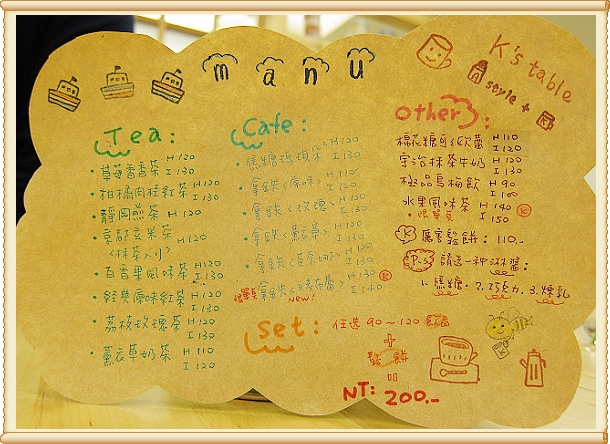 manu
K's table
style +
Tea:
• 草莓香香茶 H 120 I 130
• 柑橘肉桂紅茶 H 120 I 130
• 靜岡煎茶 H 120
• 京都玄米茶 H 120
<抹茶入り>
• 百香果風味茶 H 120 I 130
• 經典原味紅茶 H 120 I 130
• 荔枝玫瑰茶 H 120 I 120
• 薰衣草奶茶 H 110 I 120
Cafe:
• 焦糖瑪琪朵 H 120 I 130
• 拿鐵<原味> H 110 I 120
• 拿鐵<玫瑰> H 120 I 130
• 拿鐵<薰衣草> H 120 I 130
• 拿鐵 H 120 I 130
限單頁 拿鐵 H 130 I 140
New!
Other:
棉花糖可可歐蕾 H 110 I 120
宇治抹茶牛奶 H 120 I 130
極品烏梅飲 H 90 I 100
水果風味茶 H 140 I 150 K
•限單頁
K 厲害鬆餅: 110.-
P.S 請選一種淋醬:
1. 焦糖. 2. 巧克力. 3. 煉乳
set: 任选 90~120 飲品
+
鬆餅
=
NT: 200.-